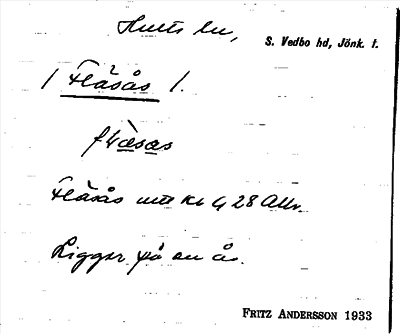 Hults sn,
S. Vedbo hd, Jönk. l.
/ Fläsås /.
fläsas
Fläsås mtl Kr 4 28 Allr.
Ligger på en ås.
FRITZ ANDERSSON 1933